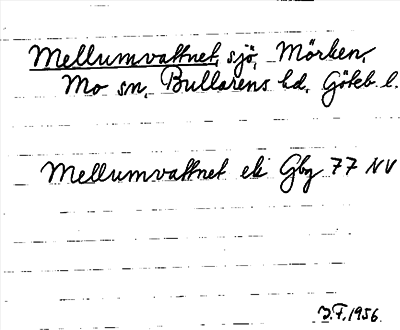 Mellumvattnet, sjö, Mörken,
Mo sn, Bullarens hd, Göteb. l.
Mellumvattnet ek Gby 77 NV
J.F. 1956.